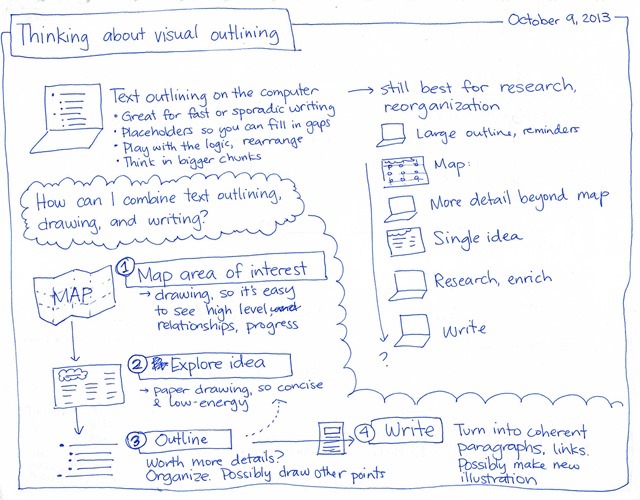 Thinking about visual outlining
October 9, 2013
Text outlining on the computer
• Great for fast or sporadic writing
• Placeholders so you can fill in gaps
• Play with the logic, rearrange
• Think in bigger chunks
→ still best for research,
reorganization
Large outline, reminders
Map:
More detail beyond map
Single idea
Research, enrich
Write
?
How can I combine text outlining,
drawing, and writing?
MAP
1 Map area of interest
→ drawing, so it's easy
to see high level and
relationships, progress
2 Explore idea
→ paper drawing, so concise
& low-energy
3 Outline
Worth more details?
Organize. Possibly draw other points
4 Write
Turn into coherent
paragraphs, links.
Possibly make new
illustration